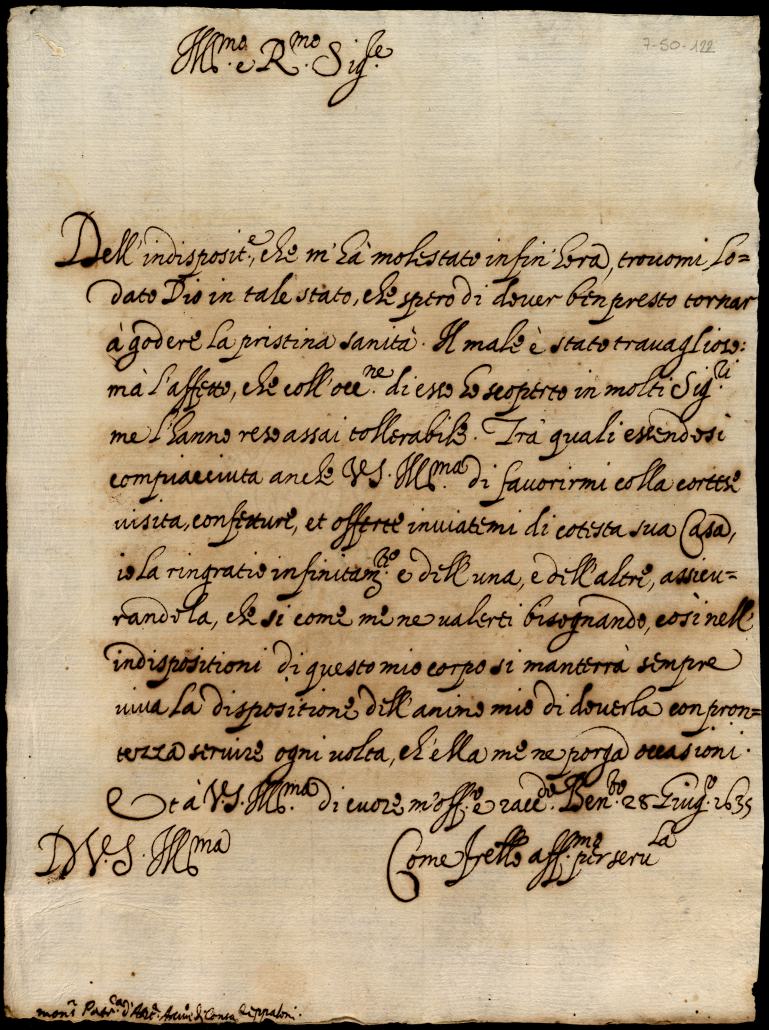 7-50-122
Ill.mo e R.mo Sig.re
Dell'indisposit.e, che m'hà molestato infin'hora, trovomi lo=
dato Dio in tale stato, che spero di dover ben presto tornar
à godere la pristina sanità. Il male è stato travaglioso:
mà l'affetto, che coll'occ.ne di esso ho scoperto in molti Sig.ri
me l'hanno reso assai tollerabile. Trà quali essendosi
compiacciuta anche V.S. Ill.ma di favorirmi colla cortese
visita, confetture, et offerte inviatemi di cotesta sua Casa,
io la ringratio infinitam.te e dell'una, e dell'altre, assicu=
randola, che si come me ne valerei bisognando, così nell'
indispositioni di questo mio corpo si manterrà sempre
viva la dispositione dell'animo mio di doverla con pron=
tezza servire ogni volta, ch'ella me ne porga occasioni.
Et à V.S. Ill.ma di cuore m'off.o e racc.do. Ben.to 28 Giug.o 1635
D V.S. Ill.ma
Come frello aff.mo per seru.la
mon.r Patr.ca d'